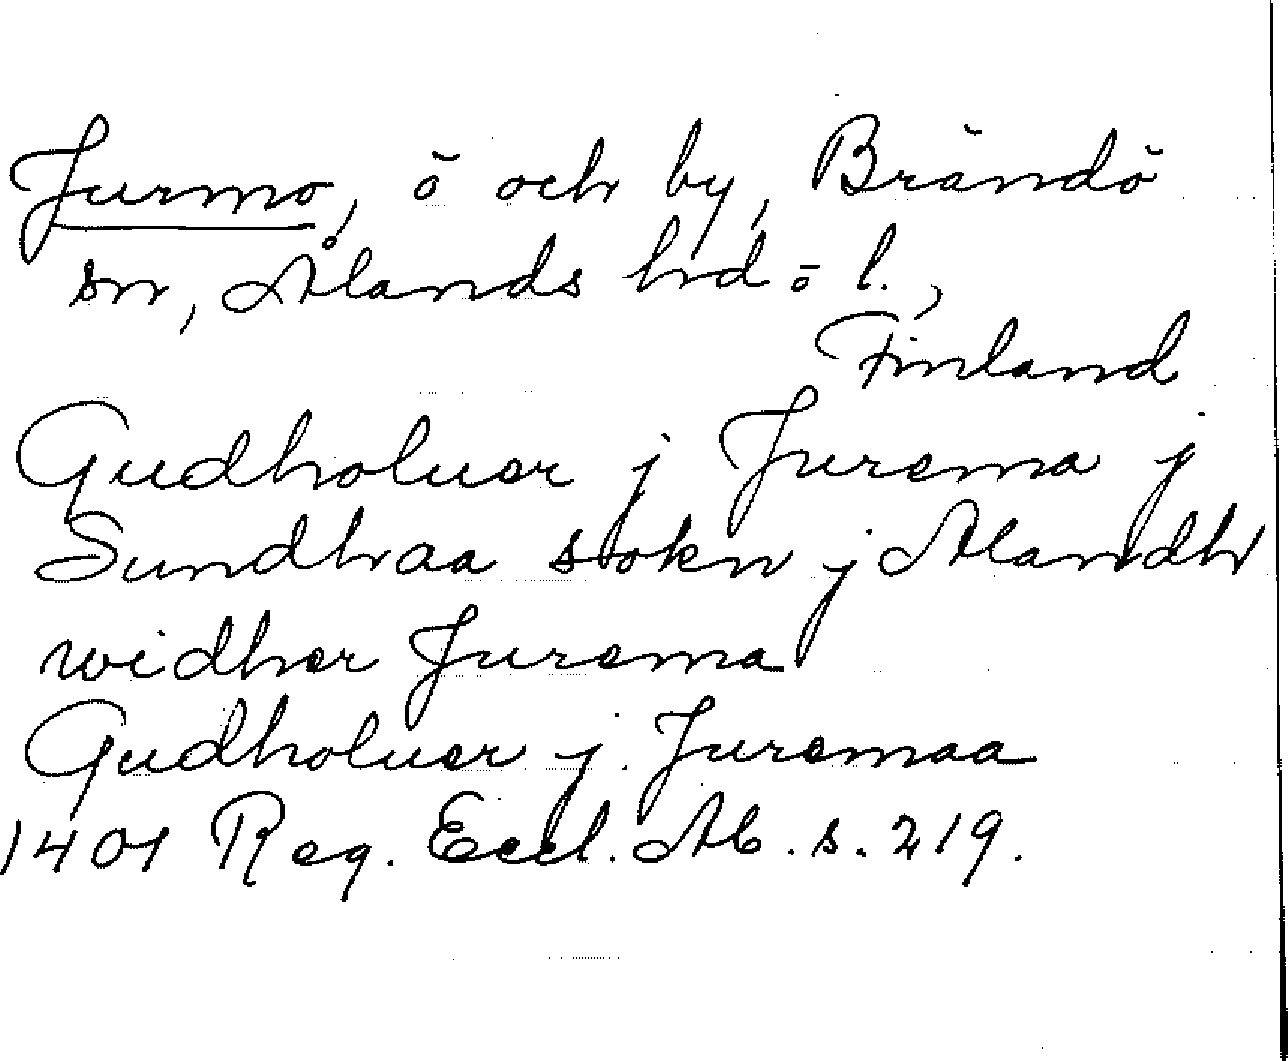 Jurmo, ö och by, Brändö
sn, Ålands hd o l.,
Finland
Gudholuer j Jurema j
Sundhaa sokn j Alandh
widher Jurema
Gudholuer j Juremaa
1401 Reg. Eccl. Ab. s. 219.